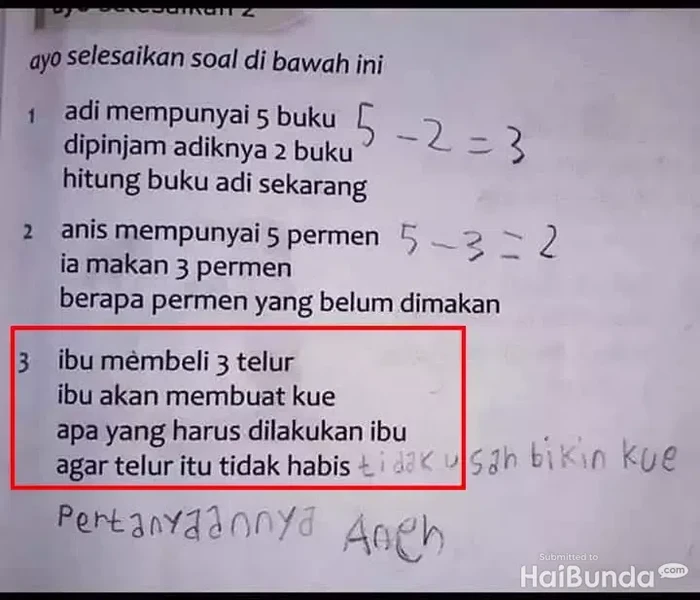 ayo selesaikan soal di bawah ini
1 adi mempunyai 5 buku 5 - 2 = 3
dipinjam adiknya 2 buku
hitung buku adi sekarang
2 anis mempunyai 5 permen 5 - 3 = 2
ia makan 3 permen
berapa permen yang belum dimakan
3 ibu membeli 3 telur
ibu akan membuat kue
apa yang harus dilakukan ibu
agar telur itu tidak habis tidak usah bikin kue
Pertanyaannya Aneh
Submitted to
HaiBunda.com